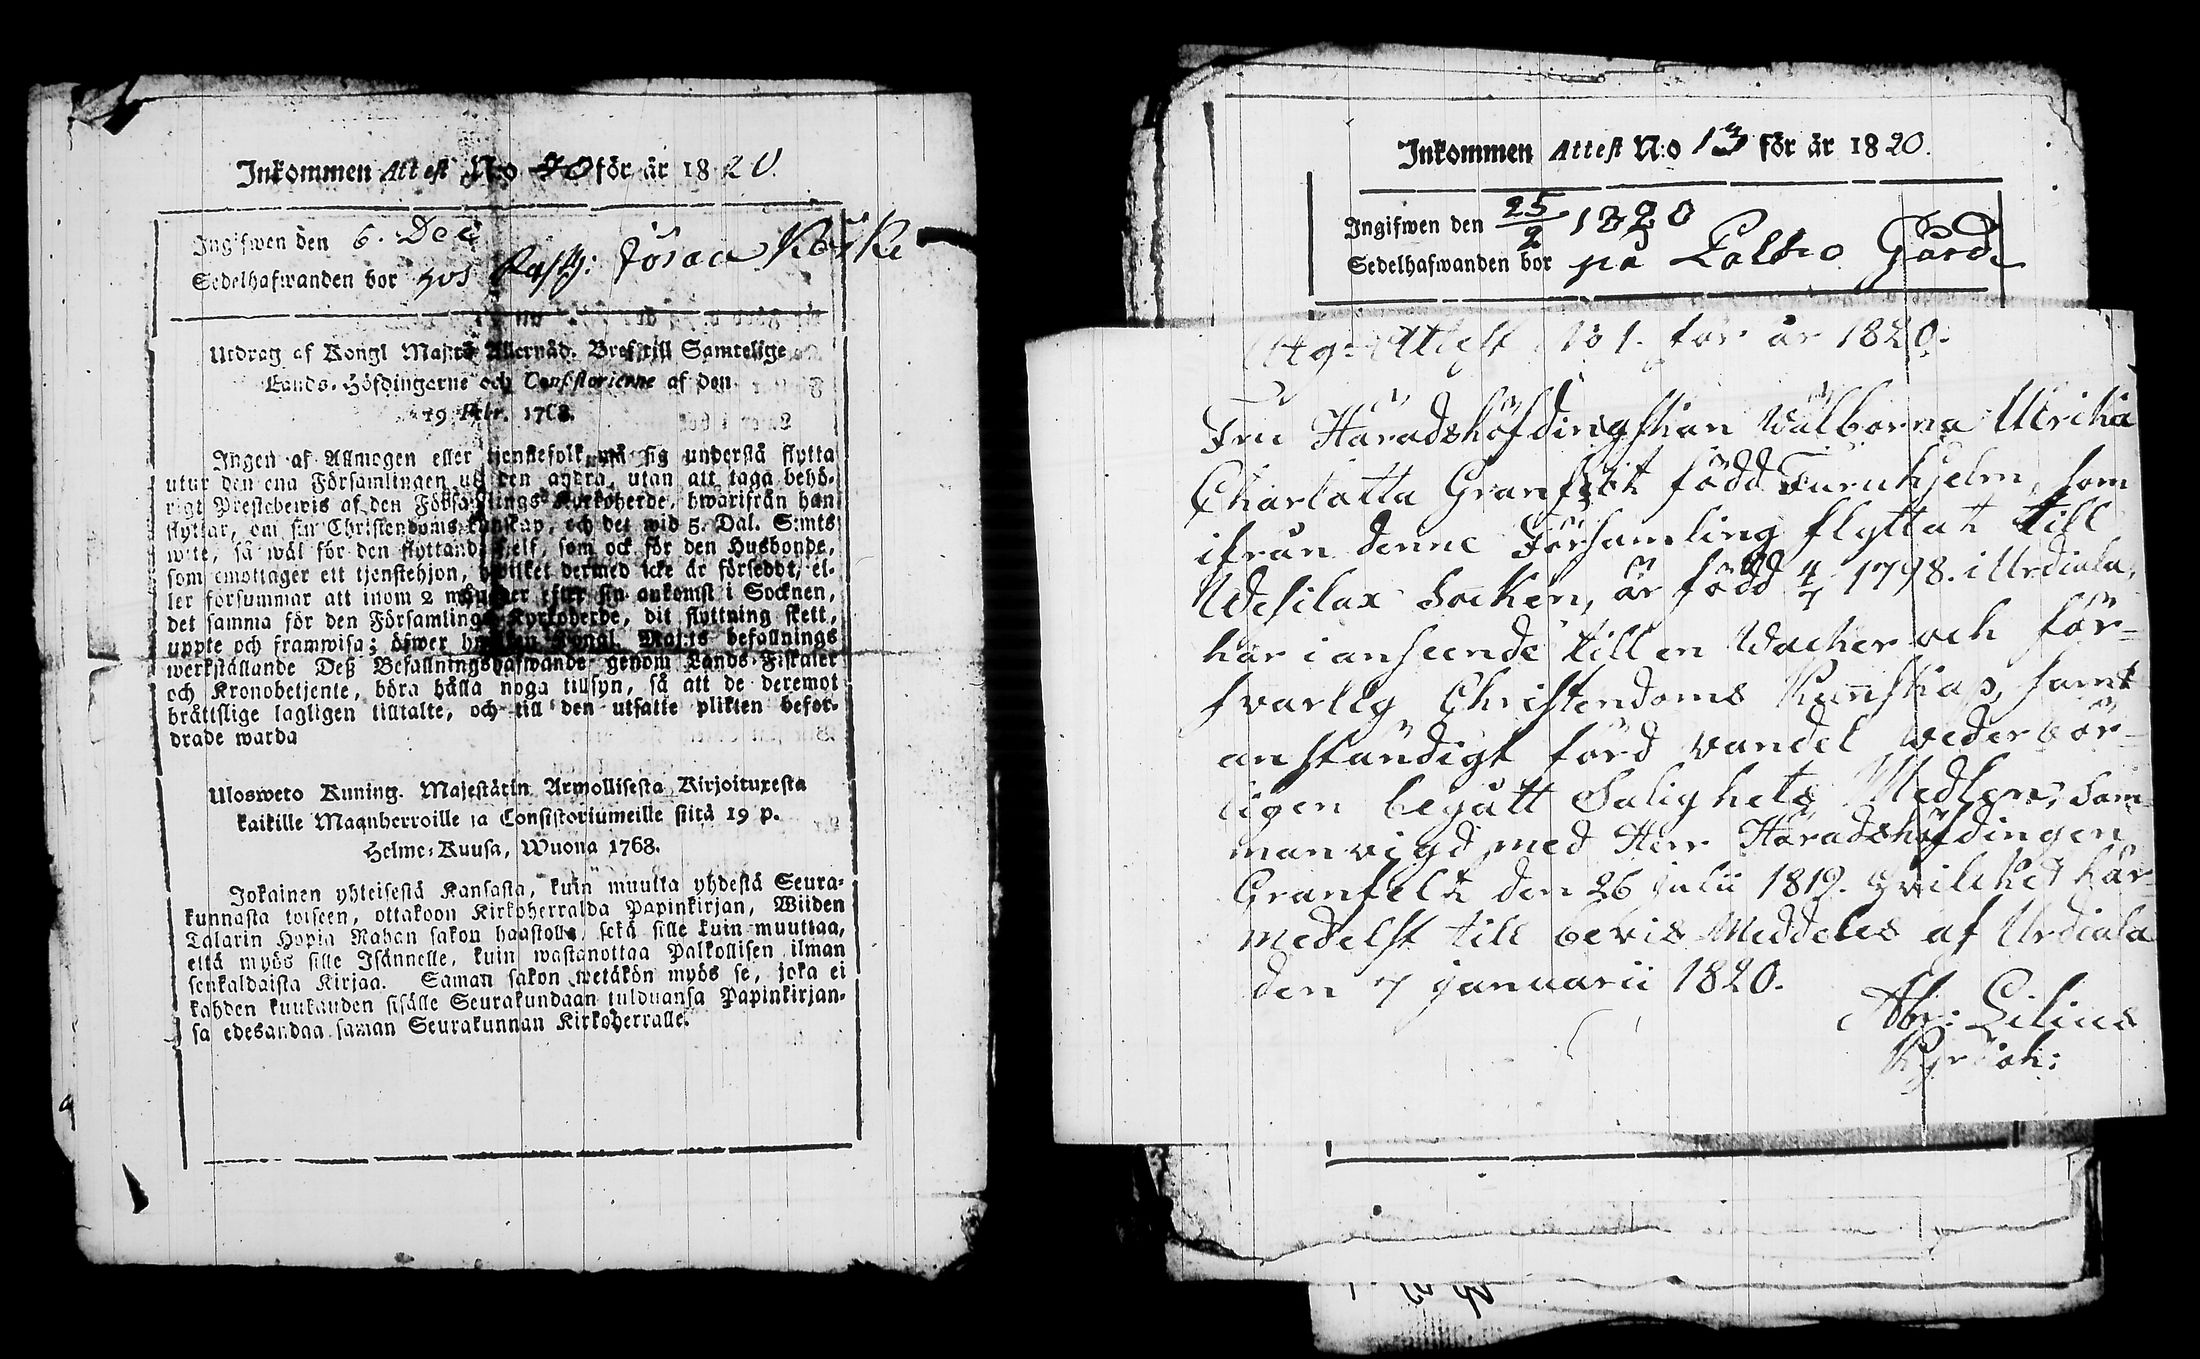 Inkommen Attest N:o 40 för år 1820.
Ingifwen den 6. Dec
Sedelhafwanden bor hos
Utdrag af Kongl Maj:ts Allernåd. Bref till Samtelige
Lands-Höfdingarne och Consistorierne af den
19 Febr. 1768.
Ingen af Allmogen eller tjenstefolk må sig understå flytta
utur den ena Församlingen uti den andra, utan att taga behö-
rigt Prestebewis af den Församlings Kyrkoherde, hwarifrån han
flyttar, om sin Christendoms kunskap, och det wid 5. Dal. S:mts
wite, så wäl för den flyttande sjelf, som ock för den Husbonde,
som emottager ett tjenstehjon, hwilket dermed icke är förseddt, el-
ler försummar att inom 2 månader efter sin ankomst i Socknen,
det samma för den Församlings Kyrkoherde, dit flyttning skett,
uppte och framwisa; öfwer hwilken Kongl. Maj:ts befallnings
werkställande Deß Befallningshafwande genom Lands-Fiskaler
och Kronobetjente, böra hålla noga tillsyn, så att de deremot
bråttslige lagligen tilltalte, och till den utsatte plikten befor-
drade warda
Ulosweto Kuning. Majestätin Armollisesta Kirjoituxesta
kaikille Maanherroille ja Consistoriumeille siitä 19 p.
Helme-Kuusa, Wuona 1768.
Jokainen yhteisestä Kansasta, kuin muutta yhdestä Seura-
kunnasta toiseen, ottakoon Kirkoherralda Papinkirjan, Wiiden
Talarin Hopia Rahan sakon haastolla, sekä sille kuin muuttaa,
että myös sille Isännelle, kuin wastanottaa Palkollisen ilman
senkaldaista Kirjaa. Saman sakon wetäkön myös se, joka ei
kahden kuukauden sisälle Seurakundaan tulduansa Papinkirjan-
sa edesandaa saman Seurakunnan Kirkoherralle.
Inkommen Attest N:o 13 för år 1820.
Ingifwen den 25/2 1820
Sedelhafwanden bor på Laldo Gård
Utg: Attest No 1. för år 1820.
Fru Häradshöfdingskan Wälborna Ulrika
Charlotta Granfelt född Furuhjelm, som
ifrån denne Församling flyttat till
Wesilax Socken, är född 4/7 1798. i Urdiala,
har i anseende till en Wacker och för-
svarlig Christendoms Kunskap, samt
anständigt förd vandel vederbör-
ligen begått Salighets Medlen, Sam-
manvigd med Herr Häradshöfdingen
Granfelt den 26 Julii 1819. hvilcket här-
medelst till bevis Meddeles af Urdiala
den 7 Januarii 1820.
Abr: Lilius